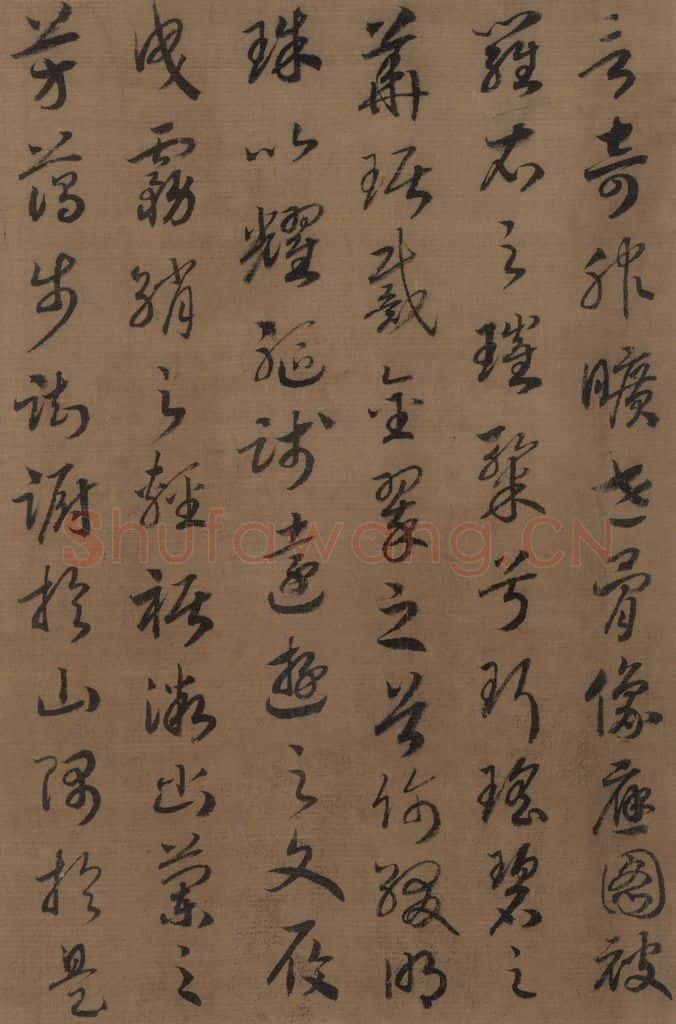 言奇服曠世骨像應圖被
羅衣之璀粲兮珥瑤碧之
華琚戴金翠之首飾綴明
珠以耀軀踐遠遊之文履
曳霧綃之輕裾微幽蘭之
芳藹步踟躕於山隅於是
Shufawang.CN